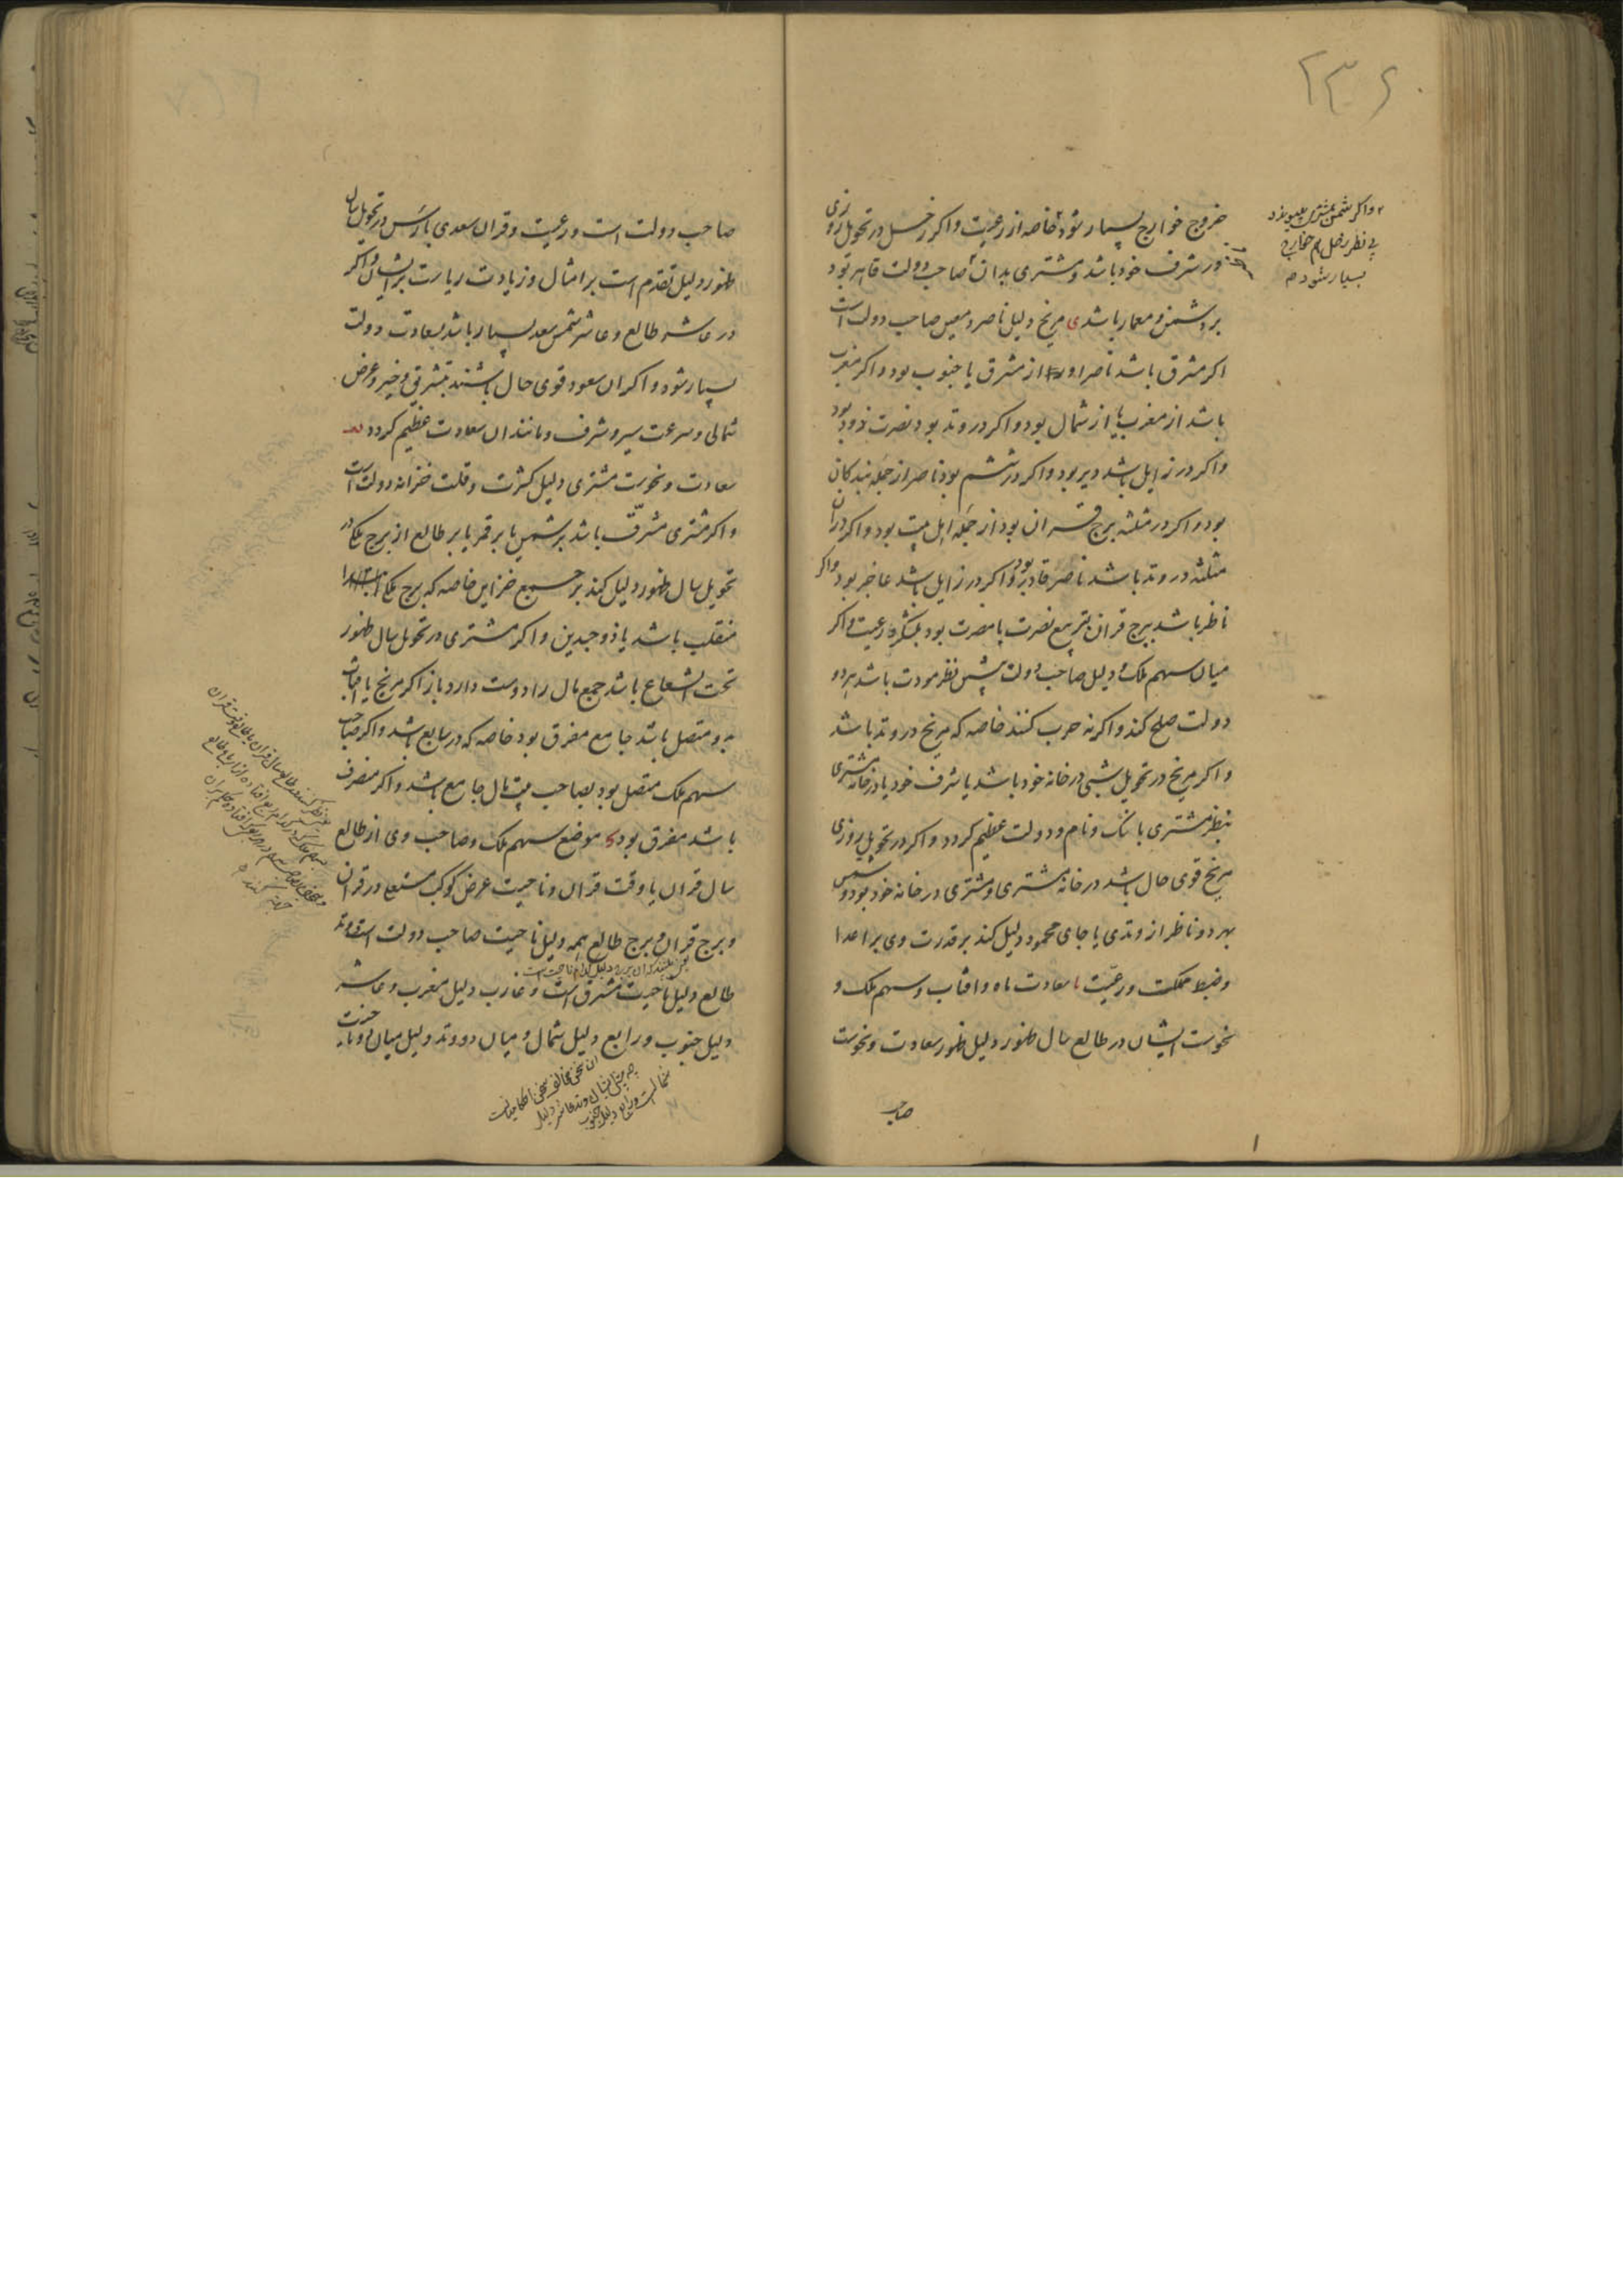 ۲۳۶
خروج خوارج بسیار شود خاصه از رعیت و اکر زحل در تحویل روزی
در شرف خود باشد و مشتری بدان صاحب دولت قاهر بود
بر دشمن و معمار باشد ی مریخ دلیل ناصر و معین صاحب دولت است
اکر مشرق باشد ناصر او از مشرق یا جنوب بود و اکر مغرب
باشد از مغرب یا از شمال بود و اکر در وتد بود نصرت زود بود
و اکر در زایل باشد دیر بود و اکر در ششم بود ناصر از جمله بندکان
بود و اکر در مثلثه برج قران بود از جمله اهل بیت بود و اکر در آن
مثلثه در وتد باشد ناصر قادر بود و اکر در زایل باشد عاجز بود و اکر
ناظر باشد ببرج قران بتربیع نصرت با مضرت بود بلشکر و رعیت و اکر
میان سهم ملک و دلیل صاحب دولت پیشین نظر مودت باشد هر دو
دولت صلح کند و اکر نه حرب کنند خاصه که مریخ در وتد باشد
و اکر مریخ در تحویل شبی در خانه خود باشد یا شرف خود یا در خانه مشتری
بنظر مشتری با ننک و نام و دولت عظیم کردد و اکر در تحویل روزی
مریخ قوی حال باشد در خانه مشتری و مشتری در خانه خود بود و شمس
بهر دو ناظر از وتدی یا جای محمود دلیل کند بر قدرت وی بر اعدا
و ضبط مملکت و رعیت یا سعادت ماه و افتاب و سهم ملک و
نحوست ایشان در طالع سال ظهور دلیل ظهور سعادت و نحوست
صاحب
و اکر شمس بمشتری پیوندد
بی نظر زحل هم خوارج
بسیار شود
صاحب دولت است و رعیت و قران سعدی با راس در تحویل سال
ظهور دلیل تقدم است بر امثال و زیادت ریاست بر ایشان و اکر
در عاشر طالع و عاشر شمس سعد بسیار باشد سعادت دولت
بسیار شود و اکر ان سعود قوی حال باشند بتشریق و حیز و عرض
شمالی و سرعت سیر و شرف و مانند ان سعادت عظیم کردد
سعادت و نحوست مشتری دلیل کثرت و قلت خزانه دولت است
و اکر مشتری مشرف باشد بر شمس یا بر قمر یا بر طالع از برج ملک در
تحویل سال ظهور دلیل کند بر جمع خزاین خاصه که برج ملک
منقلب باشد یا ذوجسدین و اکر مشتری در تحویل سال ظهور
تحت الشعاع باشد جمع مال را دوست دارد باز اکر مریخ یا افتاب
بدو متصل باشد جامع مفرق بود خاصه که در سابع باشد و اکر صاحب
سهم ملک متصل بود بصاحب بیت مال جامع باشد و اکر منصرف
باشد مفرق بود موضع سهم ملک و صاحب وی از طالع
سال قران یا وقت قران و ناحیت عرض کوکب مستعلی در قران
و برج قران و برج طالع همه دلیل ناحیت صاحب دولت است و وتد
طالع دلیل ناحیت مشرق است و غارب دلیل مغرب و عاشر
دلیل جنوب و رابع دلیل شمال و میان دو وتد دلیل میان دو ناحیت